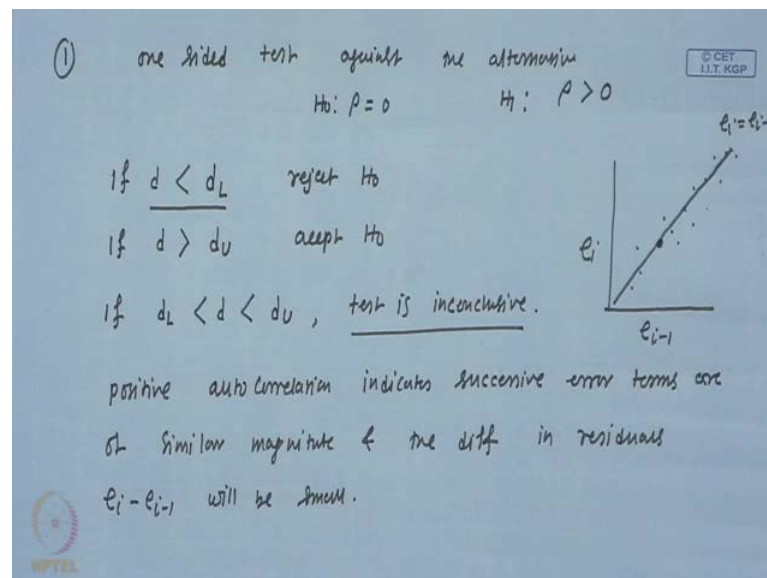 ① one sided test against the alternative
© CET
I.I.T. KGP
H₀: ρ = 0 H₁: ρ > 0
If d < d_L reject H₀
If d > d_U accept H₀
If d_L < d < d_U , test is inconclusive.
e_i = e_i-
e_i
e_{i-1}
positive auto correlation indicates successive error terms are
of similar magnitute & the diff in residuals
e_i - e_{i-1} will be small.
NPTEL